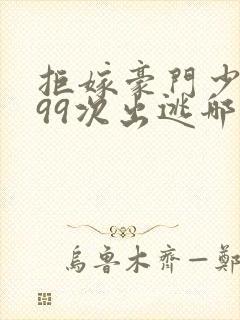 拒嫁豪門少
99次出逃
烏魯木齊—鄭